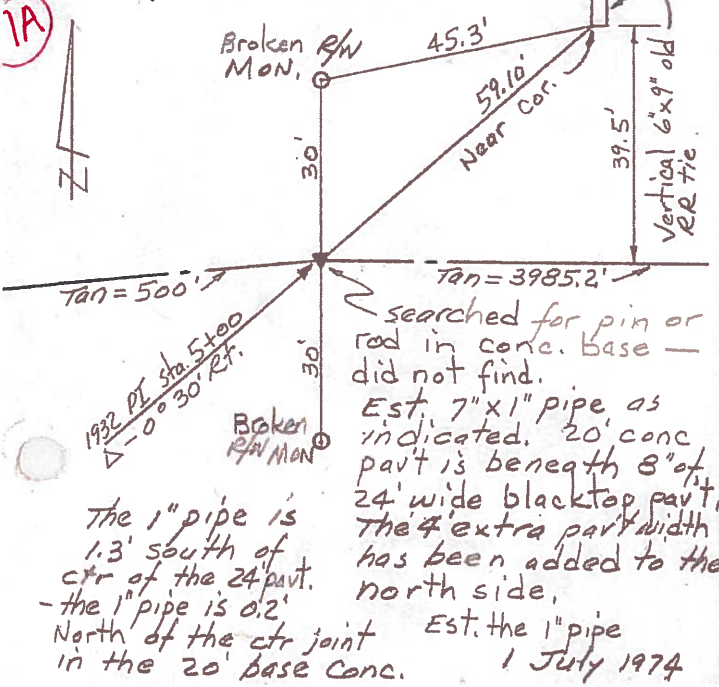 1A
Broken R/W
MON.
45.3'
59.10'
Near Cor.
39.5'
Vertical 6"x9" old
RR tie.
N
30'
Tan = 500'
Tan = 3985.2'
1932 PI sta. 5+00
Δ - 0° 30' Rt.
30'
Broken
R/W MON
searched for pin or
rod in conc. base —
did not find.
Est. 7"x1" pipe as
indicated. 20' conc
pav't is beneath 8" of
24' wide blacktop pav't.
The 4' extra pav't width
has been added to the
north side.
Est. the 1" pipe
1 July 1974
The 1" pipe is
1.3' south of
ctr of the 24' pavt.
- the 1" pipe is 0.2'
North of the ctr joint
in the 20' base conc.